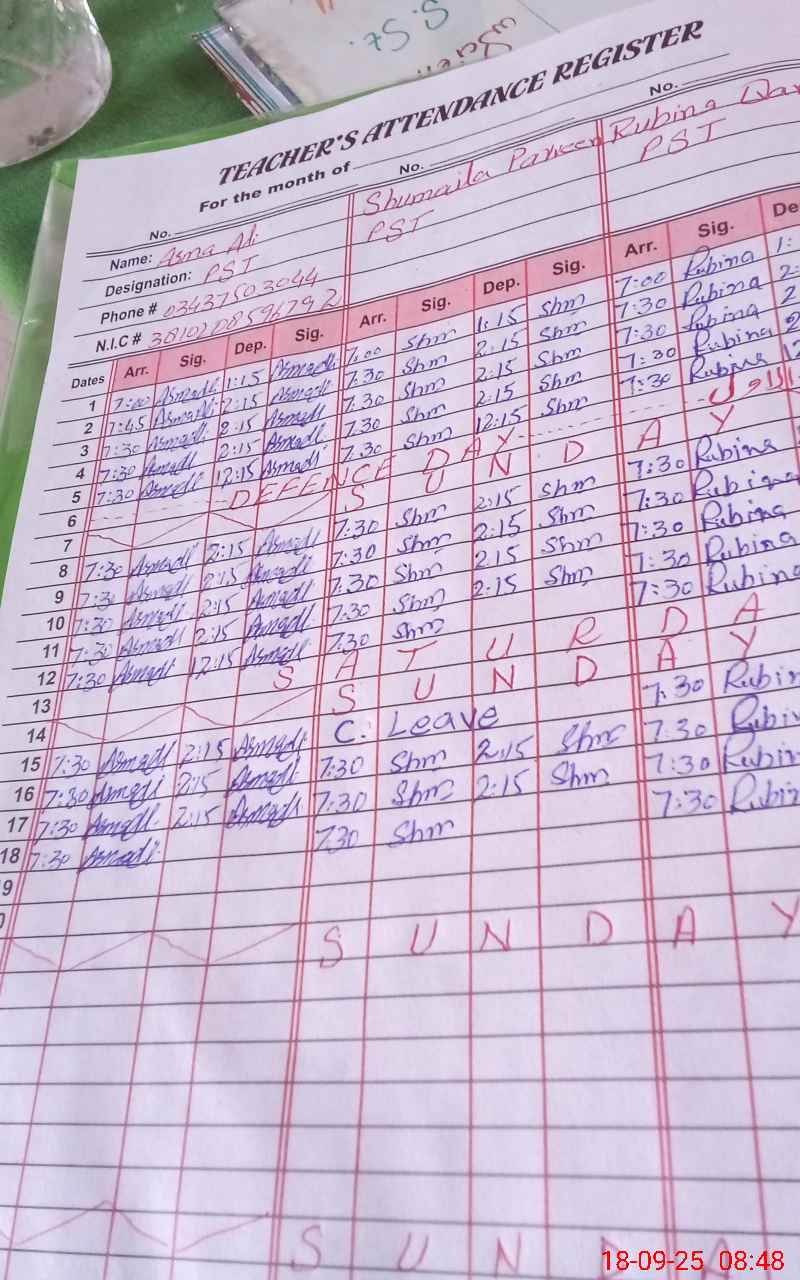 TEACHER'S ATTENDANCE REGISTER
For the month of
No. No. No.
Name: Asma Ali Shumaila Parveen Rubina
Designation: PST PST PST
Phone # 03437503044
N.I.C #
Dates Arr. Sig. Dep. Sig. Arr. Sig. Dep. Sig. Arr. Sig. De
1 7:00 Asmadli 1:15 Asmadli 7:00 Shm 1:15 Shm 7:00 Rubina 1:
2 7:45 Asmadli 2:15 Asmadli 7:30 Shm 2:15 Shm 7:30 Rubina 2:
3 7:30 Asmadli 2:15 Asmadli 7:30 Shm 2:15 Shm 7:30 Rubina 2
4 7:30 Asmadli 2:15 Asmadli 7:30 Shm 2:15 Shm 7:30 Rubina 2
5 7:30 Asmadli 12:15 Asmadli 7:30 Shm 12:15 Shm 7:30 Rubina 12
6 DEFENCE DAY
7 S U N D A Y
8 7:30 Asmadli 2:15 Asmadli 7:30 Shm 2:15 Shm 7:30 Rubina
9 7:30 Asmadli 2:15 Asmadli 7:30 Shm 2:15 Shm 7:30 Rubina
10 7:30 Asmadli 2:15 Asmadli 7:30 Shm 2:15 Shm 7:30 Rubina
11 7:30 Asmadli 2:15 Asmadli 7:30 Shm 2:15 Shm 7:30 Rubina
12 7:30 Asmadli 12:15 Asmadli 7:30 Shm 7:30 Rubina
13 S A T U R D A Y
14 S U N D A Y
15 7:30 Asmadli 2:15 Asmadli C. Leave 7:30 Rubin
16 7:30 Asmadli 2:15 Asmadli 7:30 Shm 2:15 Shm 7:30 Rubin
17 7:30 Asmadli 2:15 Asmadli 7:30 Shm 2:15 Shm 7:30 Rubin
18 7:30 Asmadli 7:30 Shm 7:30 Rubin
9
0
S U N D A Y
S U N D A
18-09-25 08:48